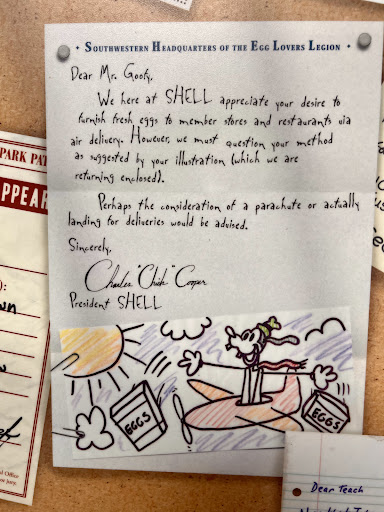 • Southwestern Headquarters of the Egg Lovers Legion •
Dear Mr. Goofy,
We here at SHELL appreciate your desire to
furnish fresh eggs to member stores and restaurants via
air delivery. However, we must question your method
as suggested by your illustration (which we are
returning enclosed).
Perhaps the consideration of a parachute or actually
landing for deliveries would be advised.
Sincerely,
Charles "Chick" Cooper
President SHELL
EGGS
EGGS
PARK PAT
APPEAR
Dear Teach